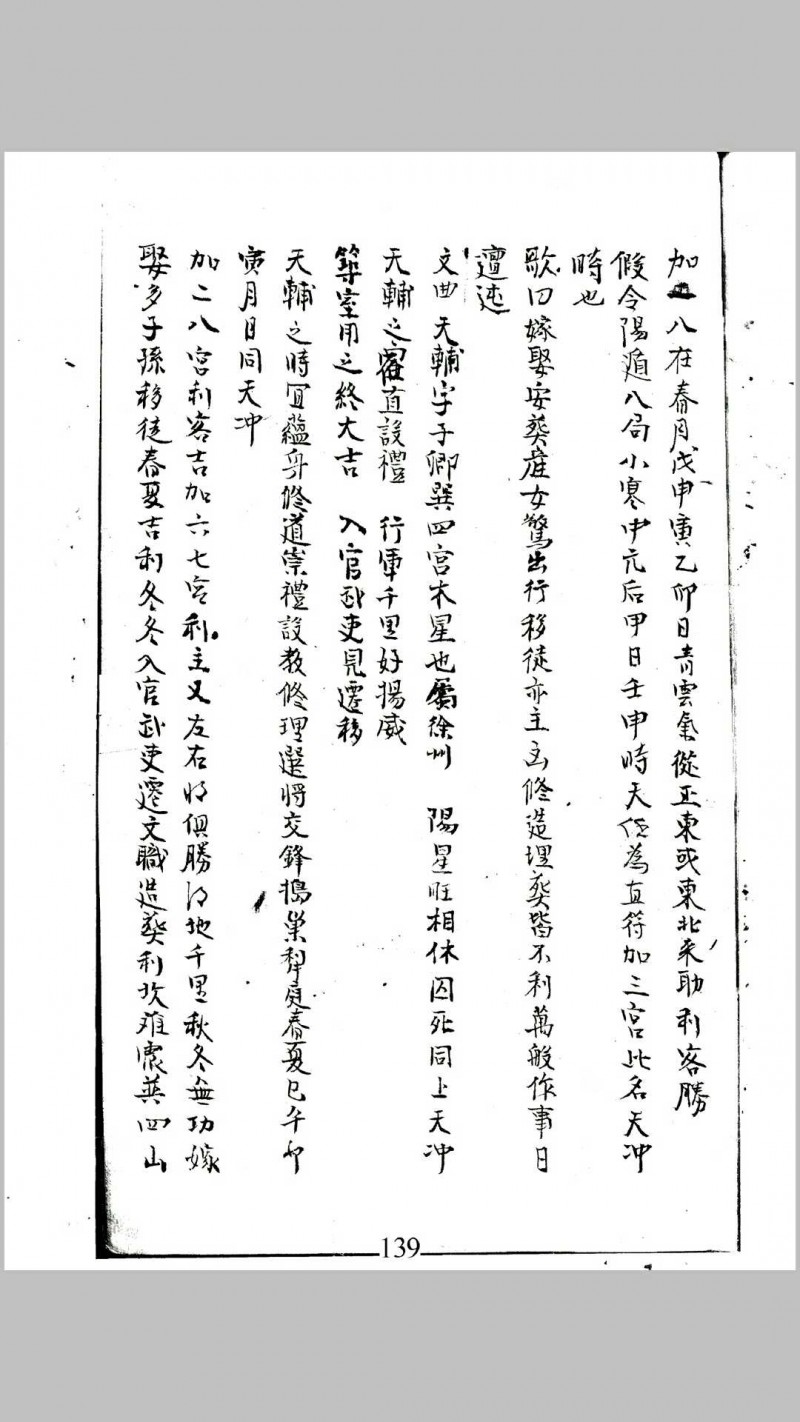 加二八在春月戊申寅乙卯日青雲氣從正東或東北来助利客勝
假令陽遁八局小寒中元后甲日壬申時天任為直符加三宮此名天冲
時也
歌曰嫁娶安葬産女驚出行移徒亦主凶修造埋葬皆不利萬般作事日
邅迍
文曲天輔字子卿巽四宮木星也屬徐州 陽星旺相休囚死同上天冲
天輔之宿直設禮 行軍千里好揚威
築室用之終大吉 入官武吏見遷移
天輔之時宜蘊身修道崇禮設教修理選將交鋒搗巢犁庭春夏巳午卯
寅月日同天冲
加二八宮利客吉加六七宮利主又左右將俱勝得地千里秋冬無功嫁
娶多子孫移徒春夏吉利冬冬入官武吏遷文職造葬利坎離震巽四山
139